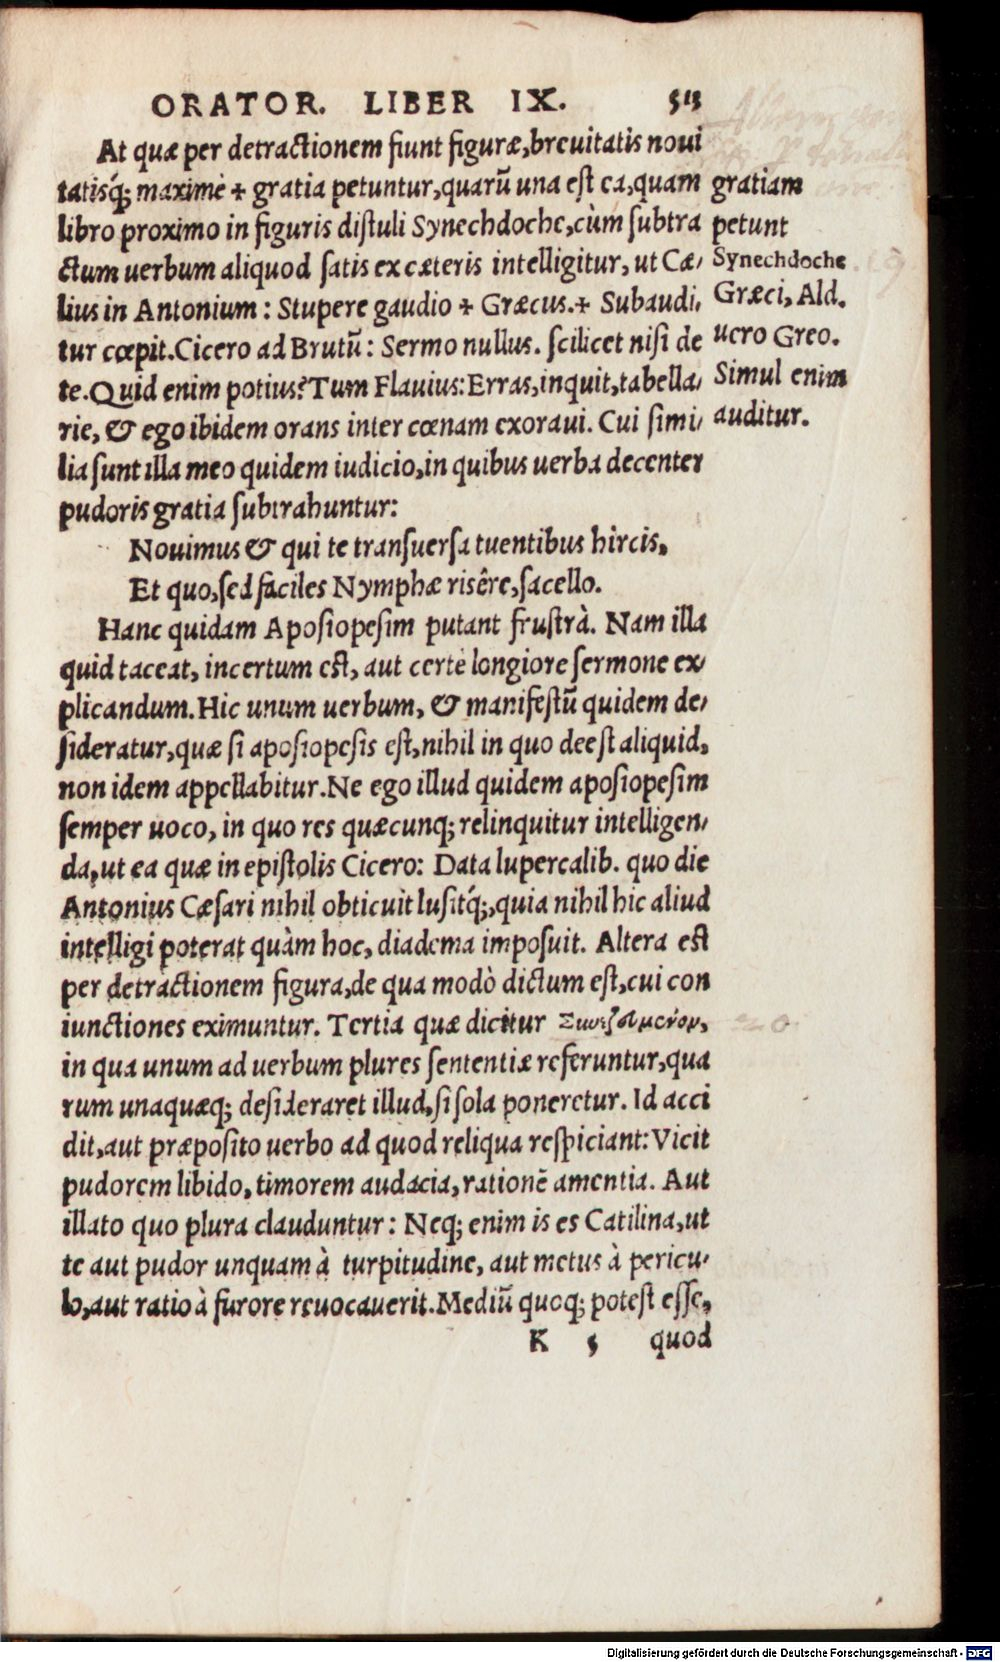 ORATOR. LIBER IX. 513
At quæ per detractionem fiunt figuræ, breuitatis noui
tatisq́; maximè + gratia petuntur, quarũ una est ea, quam
libro proximo in figuris distuli Synechdoche, cùm subtra
ctum uerbum aliquod satis ex cæteris intelligitur, ut Cæ-
lius in Antonium: Stupere gaudio + Græcus. + Subaudi-
tur cœpit. Cicero ad Brutũ: Sermo nullus. scilicet nisi de
te. Quid enim potius? Tum Flauius: Erras, inquit, tabella-
rie, & ego ibidem orans inter cœnam exoraui. Cui simi-
lia sunt illa meo quidem iudicio, in quibus uerba decenter
pudoris gratia subtrahuntur:
Nouimus & qui te transuersa tuentibus hircis,
Et quo, sed faciles Nymphæ risêre, sacello.
Hanc quidam Aposiopesim putant frustrà. Nam illa
quid taceat, incertum est, aut certè longiore sermone ex-
plicandum. Hic unum uerbum, & manifestũ quidem de-
sideratur, quæ si aposiopesis est, nihil in quo deest aliquid,
non idem appellabitur. Ne ego illud quidem aposiopesim
semper uoco, in quo res quæcunq; relinquitur intelligen-
da, ut ea quæ in epistolis Cicero: Data lupercalib. quo die
Antonius Cæsari nihil obticuit lusitq́;, quia nihil hic aliud
intelligi poterat quàm hoc, diadema imposuit. Altera est
per detractionem figura, de qua modò dictum est, cui con
iunctiones eximuntur. Tertia quæ dicitur
in qua unum ad uerbum plures sententiæ referuntur, qua
rum unaquæq; desideraret illud, si sola poneretur. Id acci
dit, aut præposito uerbo ad quod reliqua respiciant: Vicit
pudorem libido, timorem audacia, rationẽ amentia. Aut
illato quo plura clauduntur: Neq; enim is es Catilina, ut
te aut pudor unquam à turpitudine, aut metus à pericu-
lo, aut ratio à furore reuocauerit. Mediũ quoq; potest esse,
K 5 quod
gratiam
petunt
Synechdoche
Græci, Ald.
uero Greo.
Simul enim
auditur.
Digitalisierung gefördert durch die Deutsche Forschungsgemeinschaft - DFG